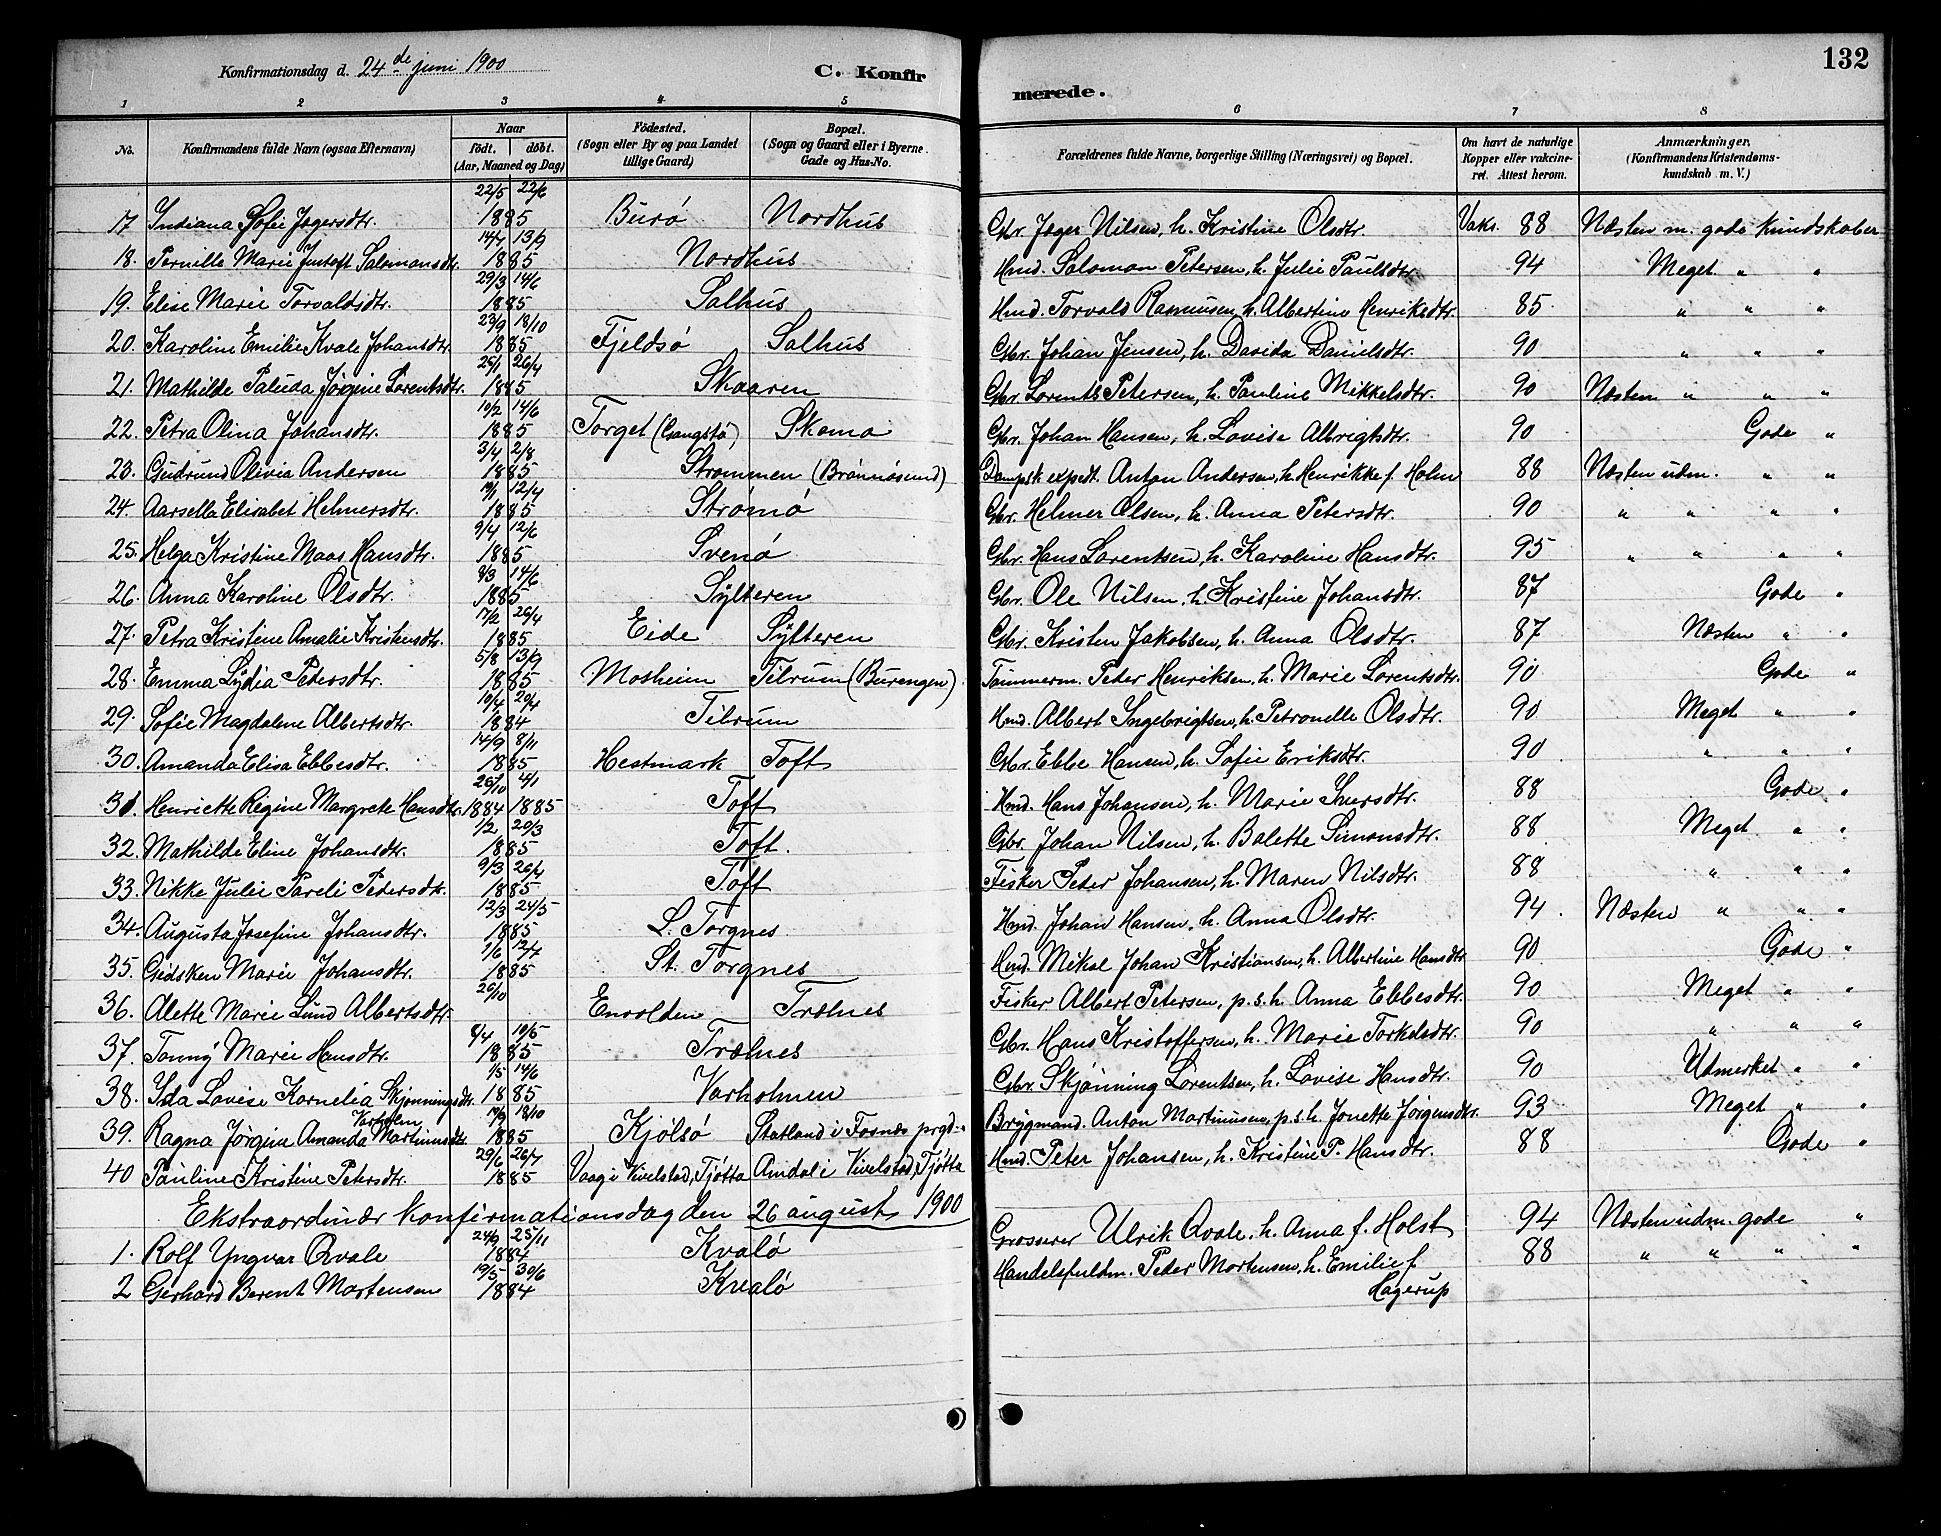 Konfirmationsdag d. 24de juni 1900
C. Konfirmerede.
132
1 2 3 4 5 6 7 8
No. Konfirmandens fulde Navn (ogsaa Efternavn) Naar födt. döbt. (Aar, Maaned og Dag) Födested. (Sogn eller By og paa Landet tillige Gaard) Bopæl. (Sogn og Gaard eller i Byerne Gade og Hus-No. Forældrenes fulde Navne, borgerlige Stilling (Næringsvei) og Bopæl. Om havt de naturlige Kopper eller vakcineret. Attest herom. Anmærkninger, (Konfirmandens Kristendomskundskab m. V.)
17 Indiana Sofie Jagersdtr. 22/5 22/6 1885 Burö Nordhus Gbr. Jager Nilsen, h. Kristine Olsdtr. Vaks. 88 Næsten m. gode kundskaber
18. Pernille Marie Salomonsdtr. 14/7 13/9 1885 Nordhus Hmd. Salomon Petersen, h. Julie Paulsdtr. 94 Meget " "
19. Elise Marie Torvaldsdtr. 29/3 14/6 1885 Salhus Hmd. Torvald Rasmusen, h. Albertine Henriksdtr. 85 " " "
20. Karoline Emilie Kvale Johansdtr. 23/9 18/10 1885 Tjeldsö Salhus Gbr. Johan Jensen, h. Davida Danielsdtr. 90 " " "
21. Mathilde Paluda Jörgine Lorentsdtr. 25/1 26/4 1885 Skaaren Gbr. Lorents Petersen, h. Pauline Mikkelsdtr. 90 Næsten " " "
22. Petra Olina Johansdtr. 10/2 14/6 1885 Torget Skomo Gbr. Johan Hansen, h. Lovise Albrigtsdtr. 90 Gode "
23. Gudrund Olivia Andersen 3/4 2/8 1885 Strömmen (Brönnösund) Dampsk. expedt. Anton Andersen, h. Henrikke f. Holm 88 Næsten udm. " "
24. Aarsella Elisabet Helmersdtr. 12/4 1885 Strömö Gbr. Helmer Olsen, h. Anna Petersdtr. 90 " " " "
25. Helga Kristine Maas Hansdtr. 9/4 12/6 1885 Svenö Gbr. Hans Lorentsen, h. Karoline Hansdtr. 95 " " " "
26. Anna Karoline Olsdtr. 8/3 14/6 1885 Sylteren Gbr. Ole Nilsen, h. Kristine Johansdtr. 87 Gode "
27. Petra Kristine Amalie Kristensdtr. 17/2 26/4 1885 Eide Sylteren Gbr. Kristen Jakobsen, h. Anna Olsdtr. 87 Næsten " "
28. Emma Lydia Pedersdtr. 5/8 13/9 1885 Mosheim Tilrum (Burengen) Tömmerm. Peder Henriksen, h. Marie Lorentsdtr. 90 Gode "
29. Sofie Magdalene Albertsdtr. 10/4 20/4 1884 Tilrum Hmd. Albert Ingebrigtsen, h. Petronelle Olsdtr. 90 Meget " "
30. Amanda Elisa Ebbesdtr. 14/9 8/11 1885 Hestmark Toft Gbr. Ebbe Hansen, h. Sofie Eriksdtr. 90 " " "
31. Henriette Regine Margrete Hansdtr. 26/10 1884 4/1 1885 Toft Hmd. Hans Johansen, h. Marie Iversdtr. 88 Gode "
32. Mathilde Eline Johansdtr. 1/2 20/3 1885 Toft. Gbr. Johan Nilsen, h. Balette Simonsdtr. 88 Meget " "
33. Nikke Julie Pareli Pedersdtr. 9/3 26/4 1885 Toft Fisker Peder Johansen, h. Maren Nilsdtr. 88 " " "
34. Augusta Josefine Johansdtr. 12/3 24/5 1885 L. Torgnes Hmd. Johan Hansen, h. Anna Olsdtr. 94 Næsten " " "
35. Gidsken Marie Johansdtr. 1/6 12/7 1885 St. Torgnes Hmd. Mikal Johan Kristiansen, h. Albertine Hansdtr. 90 Gode "
36. Alette Marie Lund Albertsdtr. 26/10 Envolden Trælnes Fisker Albert Petersen, p.s.h. Anna Ebbesdtr. 90 Meget " "
37. Tonny Marie Hansdtr. 8/4 10/5 1885 Trælnes Gbr. Hans Kristoffersen, h. Marie Torkelsdtr. 90 " " "
38. Ida Lovise Kornelia Skjönningsdtr. 1/5 14/6 1885 Varholmen Gbr. Skjönning Lorentsen, h. Lovise Hansdtr. 90 Udmerket " "
39. Ragna Jörgine Amanda Varholm Martinusdtr. 18/10 1885 Kjölsö Statland i Fosnes prgd. Brygmand. Anton Martinusen, p.s.h. Jonette Jörgensdtr. 93 Meget " "
40 Pauline Kristine Petersdtr. 29/6 26/7 1885 Vaag i Vivelstad, Tjötta Amdal i Vivelstad, Tjötta Hmd. Peter Johansen, h. Kristine P. Hansdtr. 88 Gode "
Ekstraordinær konfirmationsdag den 26 august 1900
1. Rolf Yngvar Qvale 24/9 25/11 1884 Kvalö Grosserer Ulrik Qvale, h. Anna f. Holst 94 Næsten udm. gode "
2 Gerhard Berent Mortensen 19/5 30/6 1884 Kvalö Handelsfuldm. Peder Mortensen, h. Emilie f. Hagerup 88 " " " "